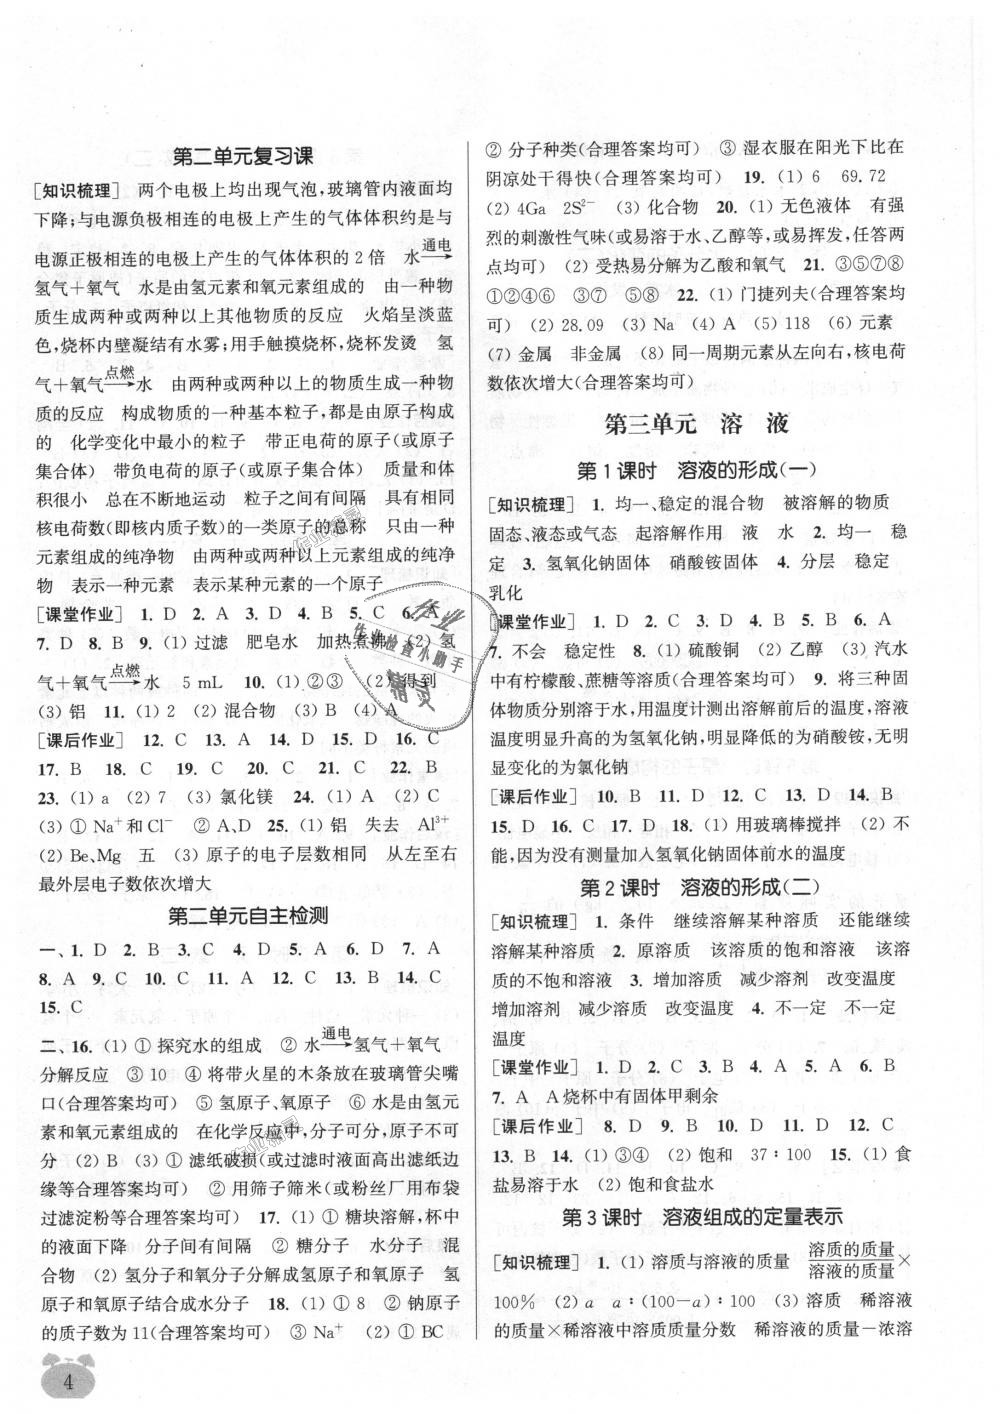 第二单元复习课
[知识梳理] 两个电极上均出现气泡,玻璃管内液面均
下降;与电源负极相连的电极上产生的气体体积约是与
电源正极相连的电极上产生的气体体积的 2 倍 水—通电→
氢气+氧气 水是由氢元素和氧元素组成的 由一种物
质生成两种或两种以上其他物质的反应 火焰呈淡蓝
色,烧杯内壁凝结有水雾;用手触摸烧杯,烧杯发烫 氢
气+氧气—点燃→水 由两种或两种以上的物质生成一种物
质的反应 构成物质的一种基本粒子,都是由原子构成
的 化学变化中最小的粒子 带正电荷的原子(或原子
集合体) 带负电荷的原子(或原子集合体) 质量和体
积很小 总在不断地运动 粒子之间有间隔 具有相同
核电荷数(即核内质子数)的一类原子的总称 只由一种
元素组成的纯净物 由两种或两种以上元素组成的纯净
物 表示一种元素 表示某种元素的一个原子
[课堂作业] 1. D 2. A 3. D 4. B 5. C 6. A
7. D 8. B 9. (1) 过滤 肥皂水 加热煮沸 (2) 氢
气+氧气—点燃→水 5 mL 10. (1) ②③ (2) 得到
(3) 铝 11. (1) 2 (2) 混合物 (3) B (4) A
[课后作业] 12. C 13. A 14. D 15. D 16. C
17. B 18. C 19. C 20. C 21. C 22. B
23. (1) a (2) 7 (3) 氯化镁 24. (1) A (2) C
(3) ① Na⁺和 Cl⁻ ② A、D 25. (1) 铝 失去 Al³⁺
(2) Be、Mg 五 (3) 原子的电子层数相同 从左至右
最外层电子数依次增大
第二单元自主检测
一、1. D 2. B 3. C 4. D 5. A 6. D 7. A
8. A 9. C 10. C 11. A 12. C 13. B 14. C
15. C
二、16. (1) ① 探究水的组成 ② 水—通电→氢气+氧气
分解反应 ③ 10 ④ 将带火星的木条放在玻璃管尖嘴
口(合理答案均可) ⑤ 氢原子、氧原子 ⑥ 水是由氢元
素和氧元素组成的 在化学反应中,分子可分,原子不可
分 (2) B (3) ① 滤纸破损(或过滤时液面高出滤纸边
缘等合理答案均可) ② 用筛子筛米(或粉丝厂用布袋
过滤淀粉等合理答案均可) 17. (1) ① 糖块溶解,杯中
的液面下降 分子间有间隔 ② 糖分子 水分子 混
合物 (2) 氢分子和氧分子分解成氢原子和氧原子 氢
原子和氧原子结合成水分子 18. (1) ① 8 ② 钠原子
的质子数为 11(合理答案均可) ③ Na⁺ (2) ① BC
② 分子种类(合理答案均可) ③ 湿衣服在阳光下比在
阴凉处干得快(合理答案均可) 19. (1) 6 69.72
(2) 4Ga 2S²⁻ (3) 化合物 20. (1) 无色液体 有强
烈的刺激性气味(或易溶于水、乙醇等,或易挥发,任答两
点均可) (2) 受热易分解为乙酸和氧气 21. ③⑤⑦⑧
①②④⑥ ③⑦ ⑤⑧ 22. (1) 门捷列夫(合理答案均
可) (2) 28.09 (3) Na (4) A (5) 118 (6) 元素
(7) 金属 非金属 (8) 同一周期元素从左向右,核电荷
数依次增大(合理答案均可)
第三单元 溶 液
第 1 课时 溶液的形成(一)
[知识梳理] 1. 均一、稳定的混合物 被溶解的物质
固态、液态或气态 起溶解作用 液 水 2. 均一 稳
定 3. 氢氧化钠固体 硝酸铵固体 4. 分层 稳定
乳化
[课堂作业] 1. D 2. D 3. C 4. B 5. B 6. A
7. 不会 稳定性 8. (1) 硫酸铜 (2) 乙醇 (3) 汽水
中有柠檬酸、蔗糖等溶质(合理答案均可) 9. 将三种固
体物质分别溶于水,用温度计测出溶解前后的温度,溶液
温度明显升高的为氢氧化钠,明显降低的为硝酸铵,无明
显变化的为氯化钠
[课后作业] 10. B 11. D 12. C 13. D 14. B
15. D 16. C 17. D 18. (1) 用玻璃棒搅拌 (2) 不
能,因为没有测量加入氢氧化钠固体前水的温度
第 2 课时 溶液的形成(二)
[知识梳理] 1. 条件 继续溶解某种溶质 还能继续
溶解某种溶质 2. 原溶质 该溶质的饱和溶液 该溶
质的不饱和溶液 3. 增加溶质 减少溶剂 改变温度
增加溶剂 减少溶质 改变温度 4. 不一定 不一定
温度
[课堂作业] 1. D 2. C 3. B 4. A 5. A 6. B
7. A A 烧杯中有固体甲剩余
[课后作业] 8. D 9. B 10. D 11. D 12. C
13. B 14. (1) ③④ (2) 饱和 37∶100 15. (1) 食
盐易溶于水 (2) 饱和食盐水
第 3 课时 溶液组成的定量表示
[知识梳理] 1. (1) 溶质与溶液的质量 溶质的质量/溶液的质量×
100% (2) a a∶(100-a)∶100 (3) 溶质 稀溶液
的质量×稀溶液中溶质质量分数 稀溶液的质量-浓溶
作业
作业检查小助手
精灵
4